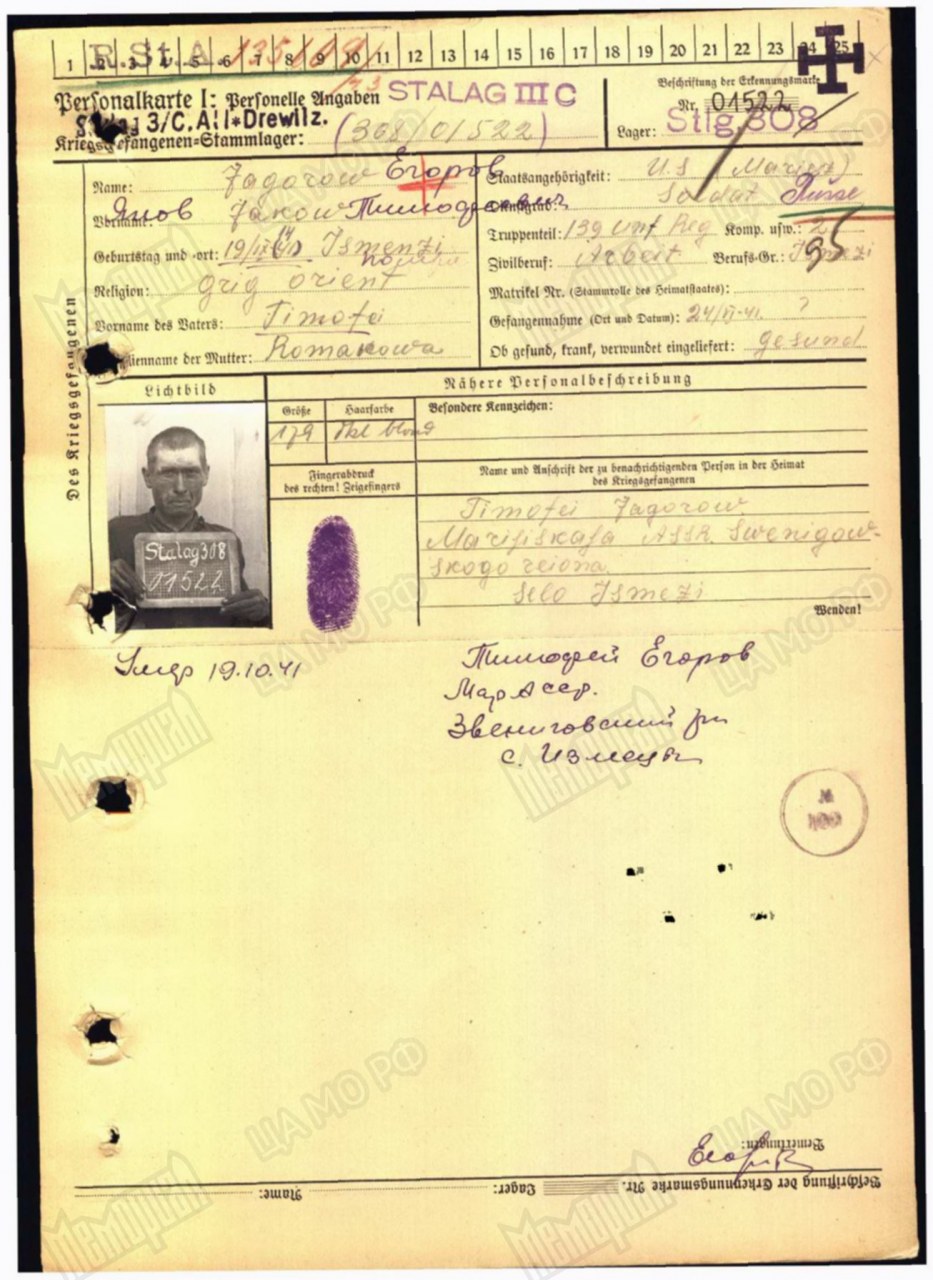 1 2 3 4 5 6 7 8 9 10 11 12 13 14 15 16 17 18 19 20 21 22 23 24 25
R.St.A.
Personalkarte I: Personelle Angaben
STALAG III C
Beschriftung der Erkennungsmarke
Nr. 01522
3/C. Alt-Drewitz.
Kriegsgefangenen-Stammlager: (308/01522)
Lager: Stlg. 308
Des Kriegsgefangenen
Name: Jagorow Егоров
Staatsangehörigkeit: U.S.
Яков Jakow Тимофеевич
Soldat Russe
Geburtstag und -ort: Ismenzi
Truppenteil: 139 Inf Reg Komp. usw.: 2
Religion: grig orient
Zivilberuf: Arbeit Berufs-Gr.:
95
Matrikel Nr. (Stammrolle des Heimatstaates):
Vorname des Vaters: Timofei
Gefangennahme (Ort und Datum): 24/VI-41. ?
Familienname der Mutter: Romanowa
Ob gesund, krank, verwundet eingeliefert: gesund
Lichtbild
Nähere Personalbeschreibung
Größe
Haarfarbe
Besondere Kennzeichen:
179
dkl blond
Fingerabdruck
des rechten! Zeigefingers
Name und Anschrift der zu benachrichtigenden Person in der Heimat
des Kriegsgefangenen
Stalag 308
01522
Timofei Jagorow
Marijskaja ASSR. Swenigow-
skogo reiona
Selo Ismezi
Wenden!
Умер 19.10.41
Тимофей Егоров
Мар Асср.
Звениговский рн
с. Измецы
Bemerkungen:
Beschriftung der Erkennungsmarke Nr. Lager: Name:
Мемориал
ЦА МО РФ